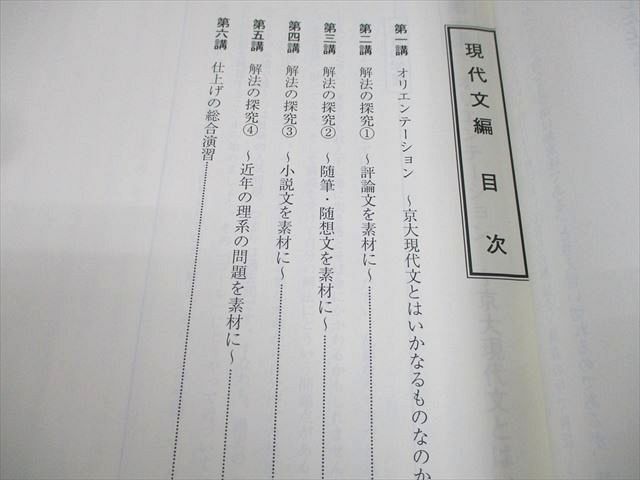 現代文編 目次
第一講 オリエンテーション ～京大現代文とはいかなるものなのか
第二講 解法の探究① ～評論文を素材に～
第三講 解法の探究② ～随筆・随想文を素材に～
第四講 解法の探究③ ～小説文を素材に～
第五講 解法の探究④ ～近年の理系の問題を素材に～
第六講 仕上げの総合演習